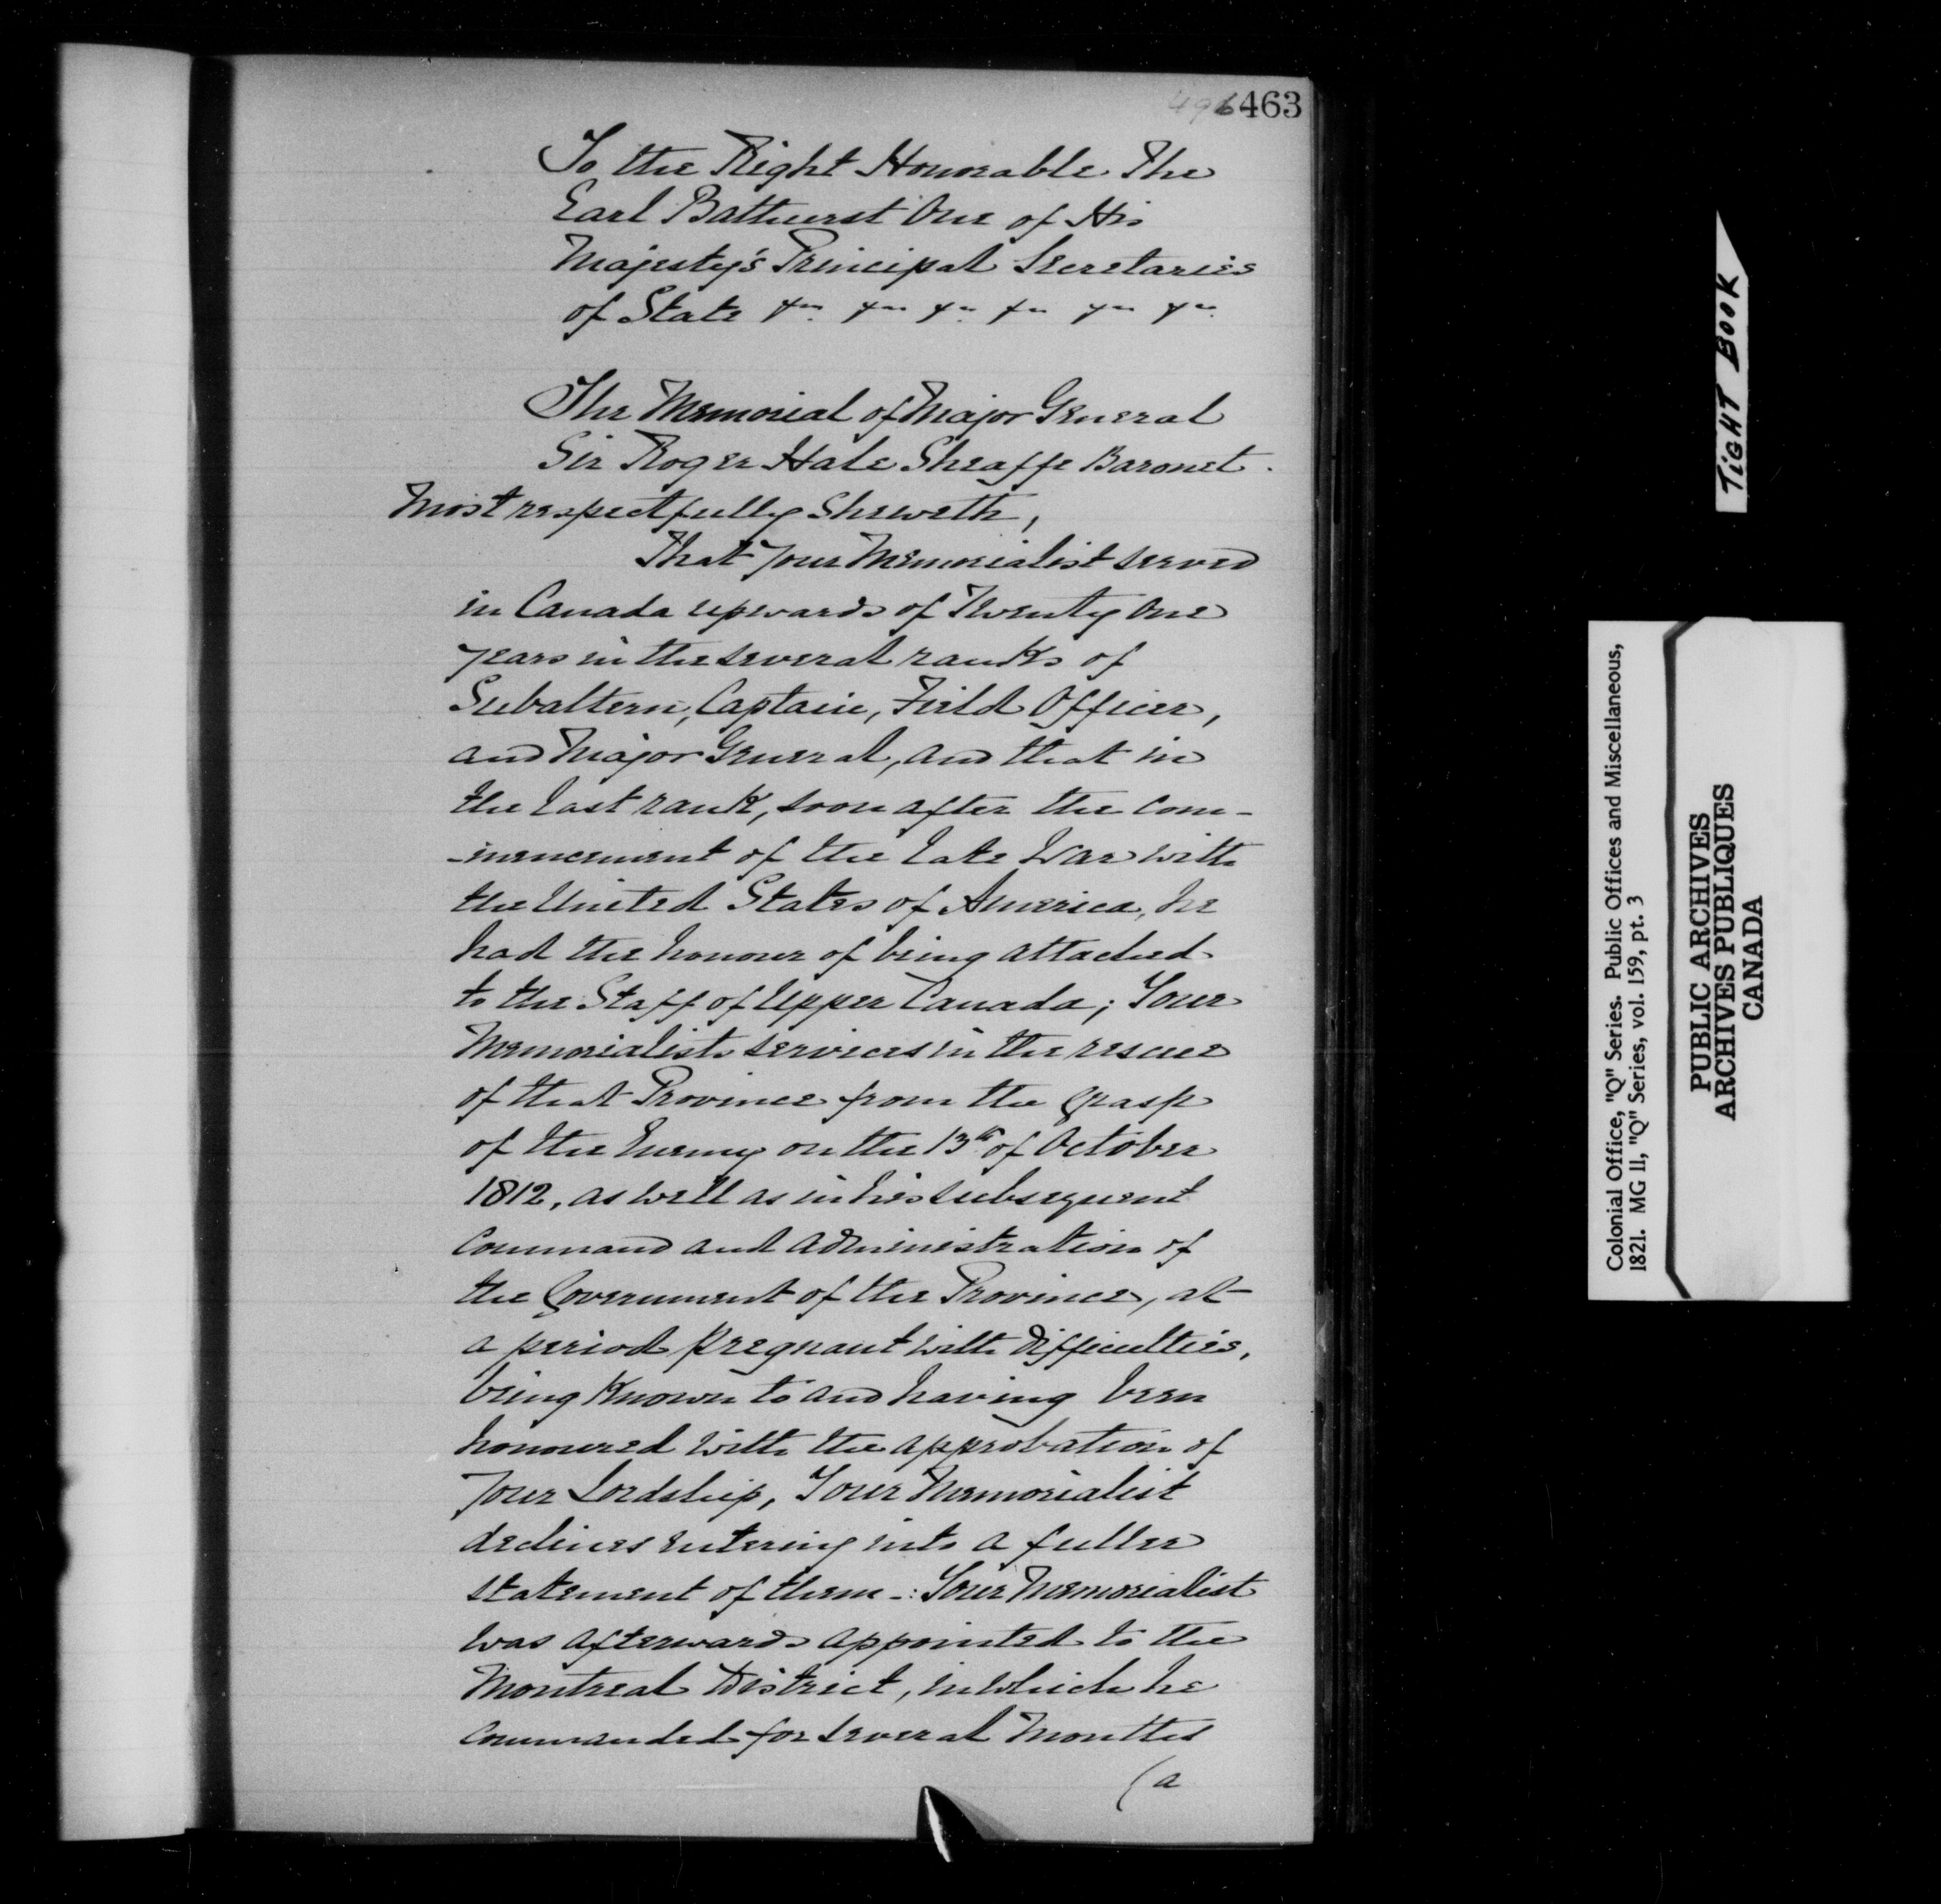 496 463
To the Right Honorable The
Earl Bathurst One of His
Majesty's Principal Secretaries
of State &c. &c &c. &c &c &c.
The Memorial of Major General
Sir Roger Hale Sheaffe Baronet.
Most respectfully Sheweth,
That your Memorialist served
in Canada upwards of Twenty One
years in the several ranks of
Subaltern, Captain, Field Officer,
and Major General, and that in
the last rank, soon after the com-
-mencement of the late War with
the United States of America, he
had the honour of being attached
to the Staff of Upper Canada; Your
Memorialists services in the rescue
of that Province from the grasp
of the Enemy on the 13th of October
1812, as well as in his subsequent
Command and administration of
the Government of the Province, at
a period pregnant with difficulties,
being known to and having been
honoured with the approbation of
your Lordship, Your Memorialist
declines entering into a fuller
statement of them -: Your Memorialist
was afterwards appointed to the
Montreal District, in which he
commanded for several months
(a
TIGHT BOOK
Colonial Office, "Q" Series. Public Offices and Miscellaneous,
1821. MG 11, "Q" Series, vol. 159, pt. 3
PUBLIC ARCHIVES
ARCHIVES PUBLIQUES
CANADA